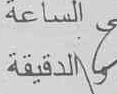 الساعة
والدقيقة